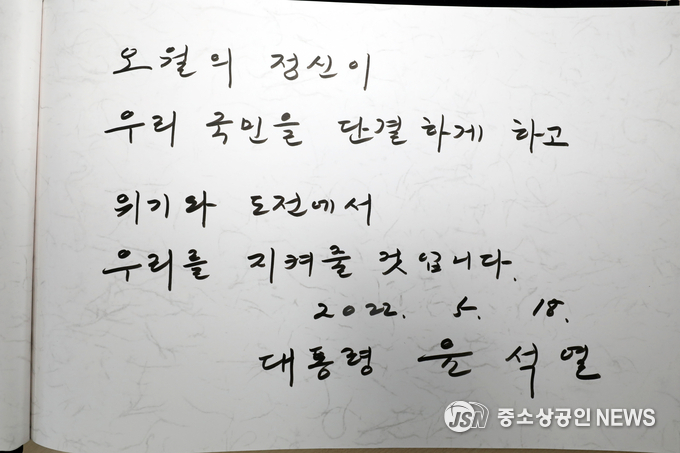 오월의 정신이
우리 국민을 단결하게 하고
위기와 도전에서
우리를 지켜줄 것입니다.
2022. 5. 18.
대통령 윤석열
JSN 중소상공인 NEWS